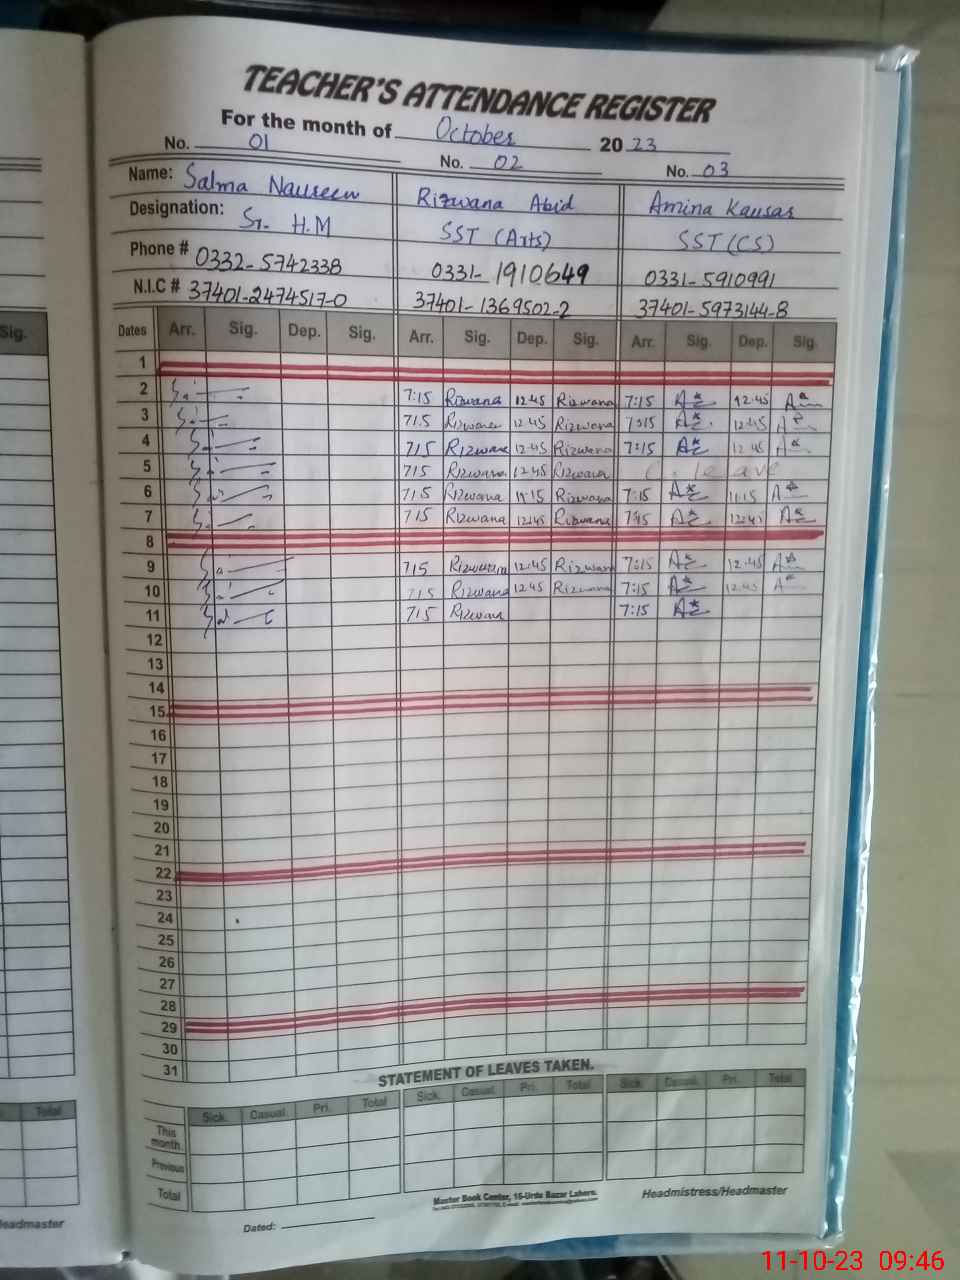 TEACHER'S ATTENDANCE REGISTER
For the month of October 2023
No. 01 No. 02 No. 03
Name: Salma Naureen Rizwana Abid Amina Kausar
Designation: Sr. H.M SST (Arts) SST (CS)
Phone # 0332-5742338 0331-1910649 0331-5910991
N.I.C # 37401-2474517-0 37401-1369502-2 37401-5973144-8
Sig.
Dates Arr. Sig. Dep. Sig. Arr. Sig. Dep. Sig. Arr. Sig. Dep. Sig.
1
2 7:15 Rizwana 12:45 Rizwana 7:15 12:45
3 715 Rizwana 12:45 Rizwana 7:15 12:45
4 715 Rizwana 12:45 Rizwana 7:15 12:45
5 715 Rizwana 12:45 Rizwana C. leave
6 715 Rizwana 11:15 Rizwana 7:15 11:15
7 715 Rizwana 12:45 Rizwana 7:15 12:45
8
9 715 Rizwana 12:45 Rizwana 7:15 12:45
10 715 Rizwana 12:45 Rizwana 7:15 12:45
11 715 Rizwana 7:15
12
13
14
15
16
17
18
19
20
21
22
23
24
25
26
27
28
29
30
31
STATEMENT OF LEAVES TAKEN.
Total Sick. Casual. Pri. Total Sick. Casual. Pri. Total Sick. Casual. Pri. Total
This month
Previous
Total
Master Book Center, 16-Urdu Bazar Lahore.
Headmistress/Headmaster
Headmaster
Dated:
11-10-23 09:46